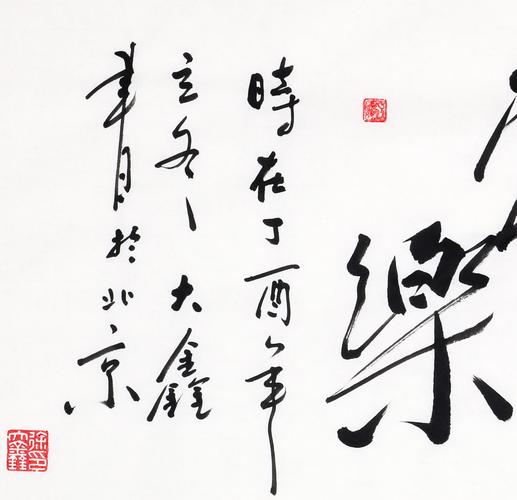 樂
時在丁酉年
立冬大鑫
書於北京
徐印大鑫